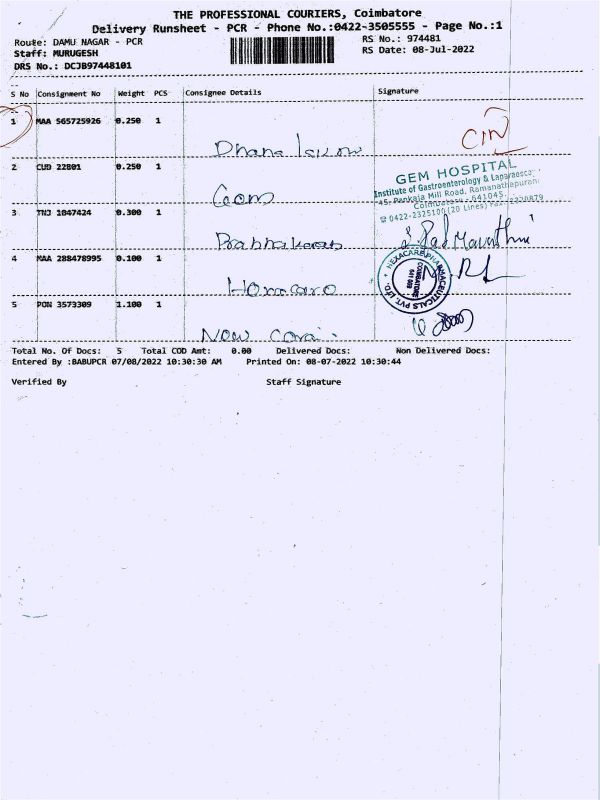 THE PROFESSIONAL COURIERS, Coimbatore
Delivery Runsheet - PCR - Phone No.:0422-3505555 - Page No.:1
Route: DAMU NAGAR - PCR
RS No.: 974481
Staff: MURUGESH
RS Date: 08-Jul-2022
DRS No.: DCJB97448101
S No Consignment No Weight PCS Consignee Details Signature
1 MAA 565725926 0.250 1
2 CUD 22801 0.250 1
GEM HOSPITAL
Institute of Gastroenterology & Laparosco
45, Pankaja Mill Road, Ramanathapuram
Coimbatore - 641045
0422-2325100 (20 Lines)
3 TNJ 1047424 0.300 1
Prabhakaran
4 MAA 288478995 0.100 1
HEXACARE PHARMACEUTICALS PVT. LTD.
COIMBATORE
5 PON 3573309 1.100 1
Total No. Of Docs: 5 Total COD Amt: 0.00 Delivered Docs: Non Delivered Docs:
Entered By :BABUPCR 07/08/2022 10:30:30 AM Printed On: 08-07-2022 10:30:44
Verified By Staff Signature